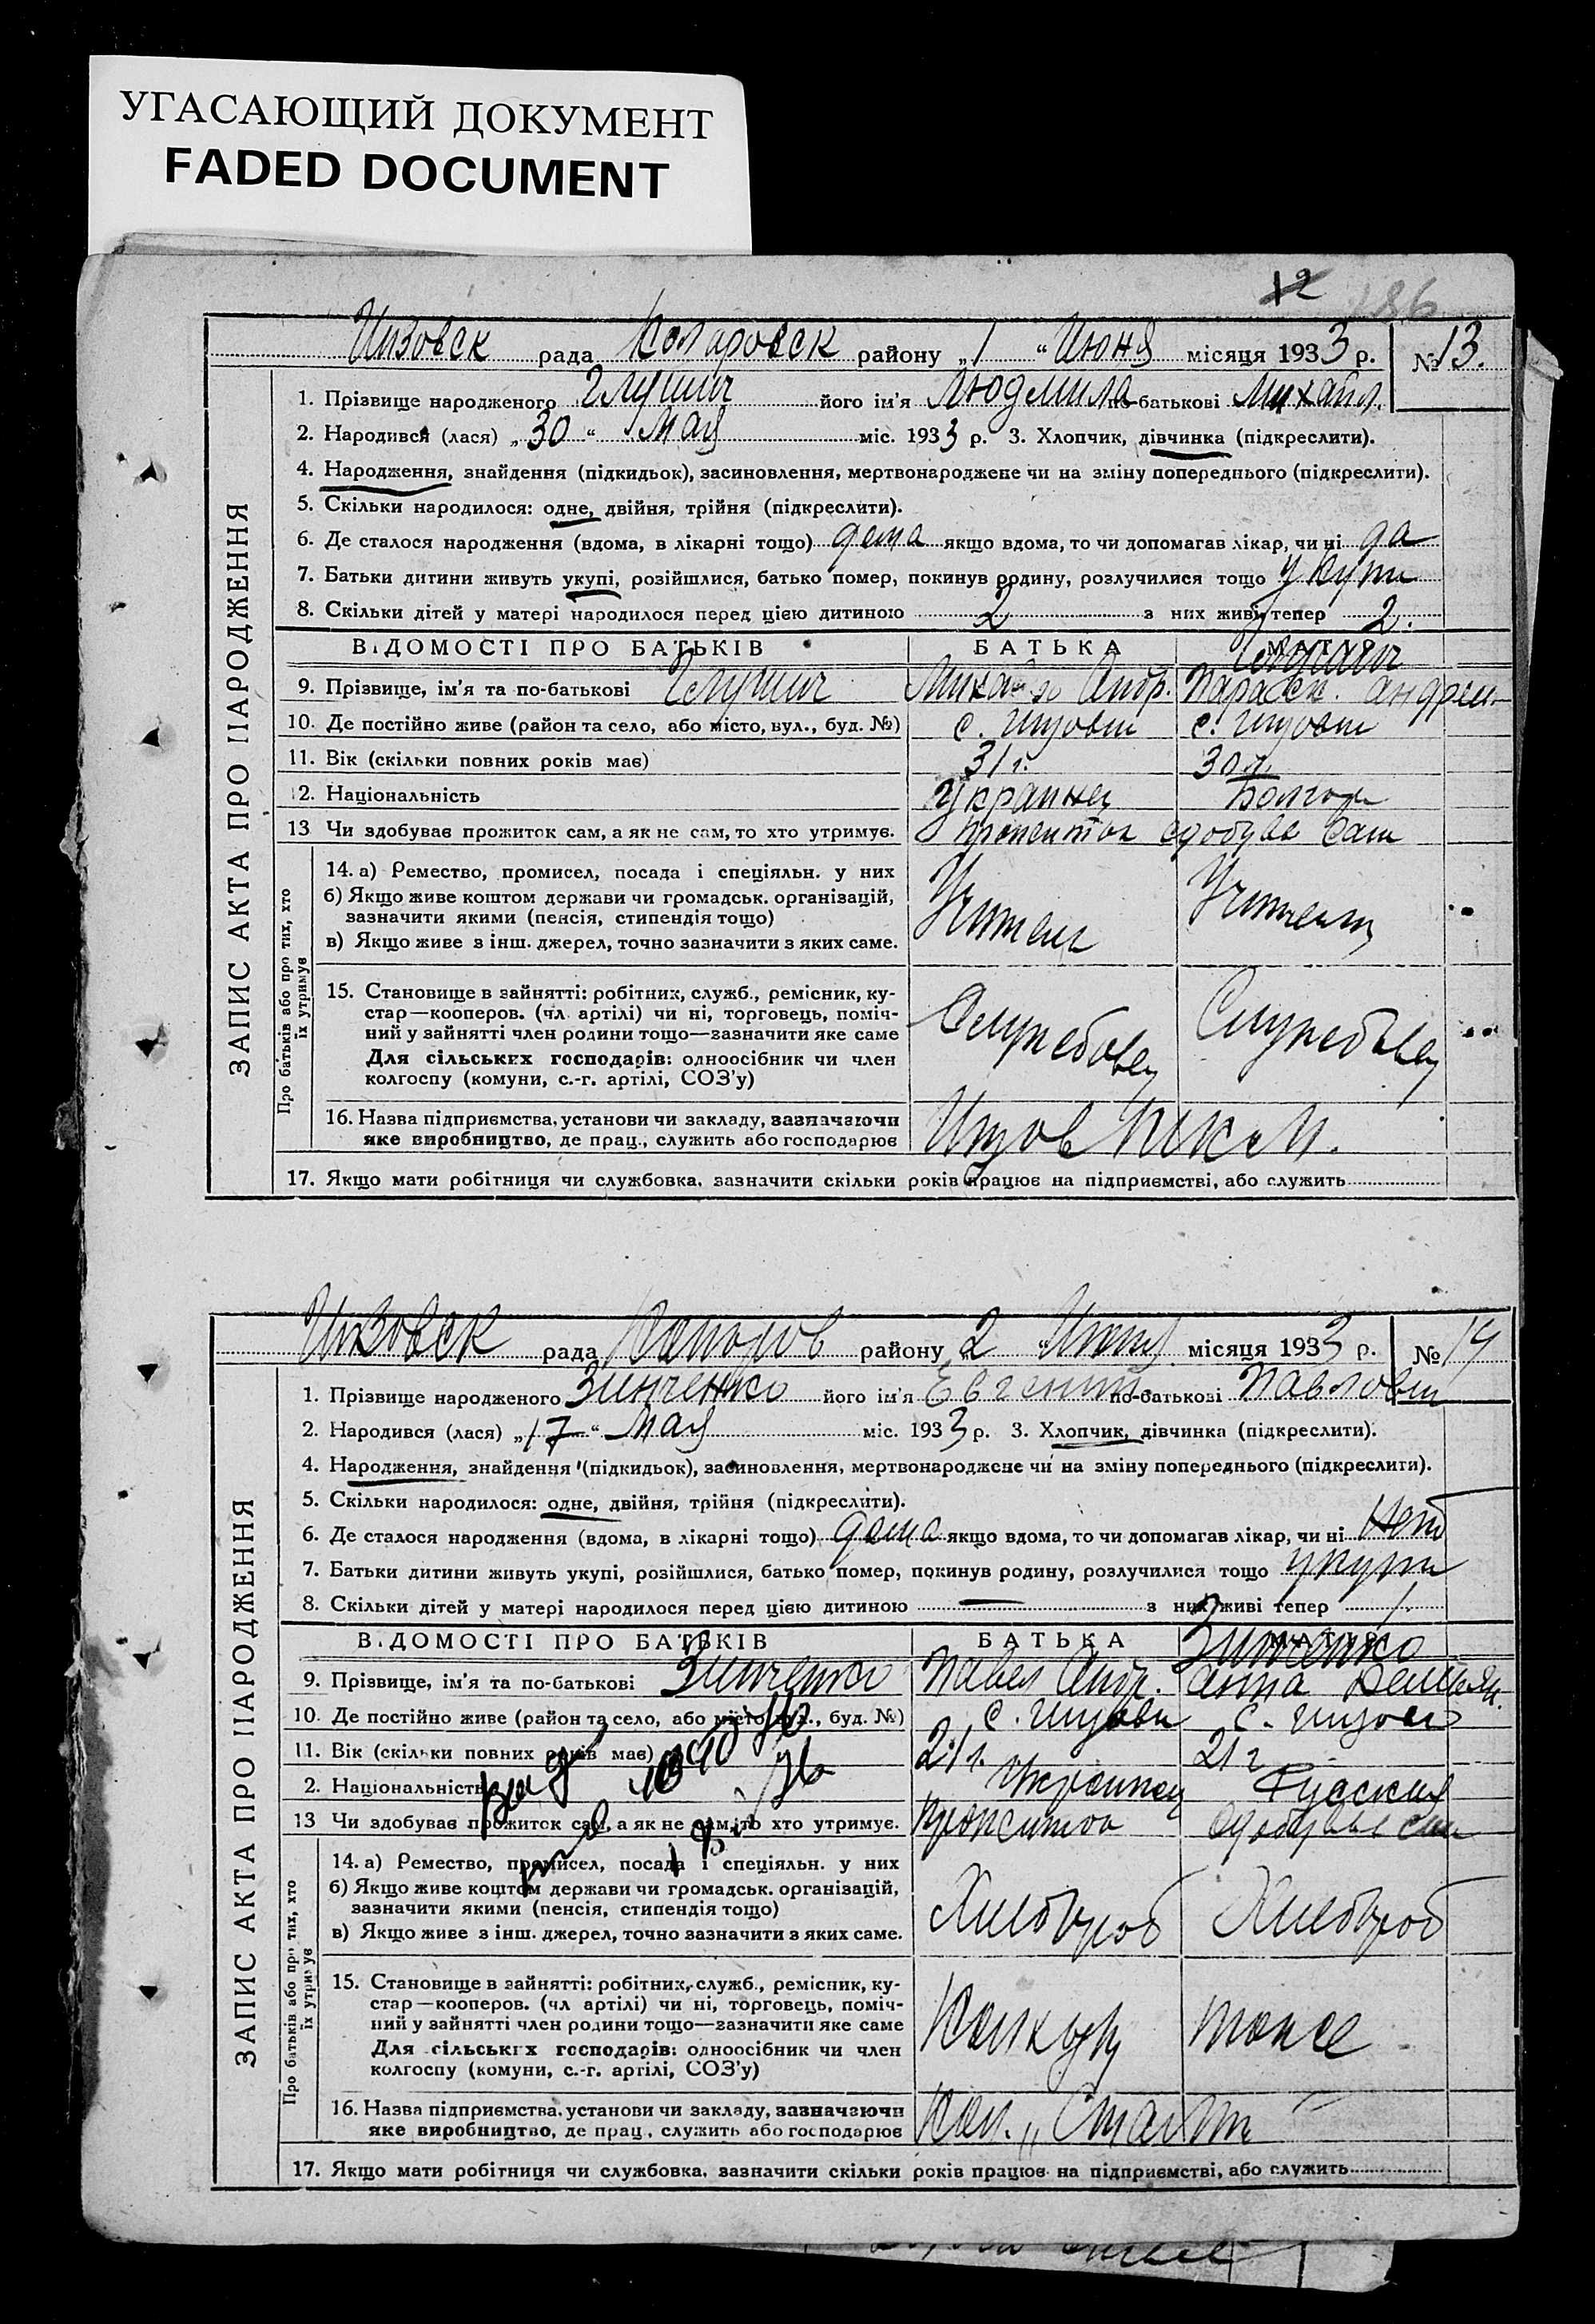 УГАСАЮЩИЙ ДОКУМЕНТ
FADED DOCUMENT
12
186
рада Коларовск району „1“ Июня місяця 1933 р. № 13.
ЗАПИС АКТА ПРО НАРОДЖЕННЯ
1. Прізвище народженого його ім'я Людмила по-батькові Михайл.
2. Народився (лася) „30“ Мая міс. 1933 р. 3. Хлопчик, дівчинка (підкреслити).
4. Народження, знайдення (підкидьок), засиновлення, мертвонароджене чи на зміну попереднього (підкреслити).
5. Скільки народилося: одне, двійня, трійня (підкреслити).
6. Де сталося народження (вдома, в лікарні тощо) дома якщо вдома, то чи допомагав лікар, чи ні да
7. Батьки дитини живуть укупі, розійшлися, батько помер, покинув родину, розлучилися тощо укупи
8. Скільки дітей у матері народилося перед цією дитиною 2 з них живі тепер 2.
ВІДОМОСТІ ПРО БАТЬКІВ БАТЬКА МАТЕРІ
9. Прізвище, ім'я та по-батькові Михайло Андр. Параск. Андреи
10. Де постійно живе (район та село, або місто, вул., буд. №)
11. Вік (скільки повних років має) 31 г. 30 л.
12. Національність Украинец Болгар
13 Чи здобував прожиток сам, а як не сам, то хто утримує. прожиток здобував сам
Про батьків або про тих, хто їх утримує
14. а) Ремество, промисел, посада і спеціяльн. у них
б) Якщо живе коштом держави чи громадськ. організацій,
зазначити якими (пенсія, стипендія тощо)
в) Якщо живе з інш. джерел, точно зазначити з яких саме.
Учитель
15. Становище в зайнятті: робітник, служб., ремісник, ку-
стар—кооперов. (чл. артілі) чи ні, торговець, поміч-
ний у зайнятті член родини тощо—зазначити яке саме
Для сільських господарів: одноосібник чи член
колгоспу (комуни, с.-г. артілі, СОЗ'у)
16. Назва підприємства, установи чи закладу, зазначаючи
яке виробництво, де прац., служить або господарює
17. Якщо мати робітниця чи службовка, зазначити скільки років працює на підприємстві, або служить
рада району „2“ місяця 1933 р. № 14
ЗАПИС АКТА ПРО НАРОДЖЕННЯ
1. Прізвище народженого Зинченко його ім'я Евгений по-батькові Павлович
2. Народився (лася) „17“ Мая міс. 1933 р. 3. Хлопчик, дівчинка (підкреслити).
4. Народження, знайдення (підкидьок), засиновлення, мертвонароджене чи на зміну попереднього (підкреслити).
5. Скільки народилося: одне, двійня, трійня (підкреслити).
6. Де сталося народження (вдома, в лікарні тощо) дома якщо вдома, то чи допомагав лікар, чи ні нет
7. Батьки дитини живуть укупі, розійшлися, батько помер, покинув родину, розлучилися тощо укупи
8. Скільки дітей у матері народилося перед цією дитиною — з них живі тепер 1.
Зинченко
ВІДОМОСТІ ПРО БАТЬКІВ БАТЬКА МАТЕРІ
9. Прізвище, ім'я та по-батькові Зинченко Павел Андр. Анна Демьян.
10. Де постійно живе (район та село, або місто, вул., буд. №)
11. Вік (скільки повних років має) 21 г. 21 г.
2. Національність Украинец Русская
13 Чи здобував прожиток сам, а як не сам, то хто утримує. прожиток
Про батьків або про тих, хто їх утримує
14. а) Ремество, промисел, посада і спеціяльн. у них
б) Якщо живе коштом держави чи громадськ. організацій,
зазначити якими (пенсія, стипендія тощо)
в) Якщо живе з інш. джерел, точно зазначити з яких саме.
Хлебороб Хлебороб
15. Становище в зайнятті: робітник, служб., ремісник, ку-
стар—кооперов. (чл артілі) чи ні, торговець, поміч-
ний у зайнятті член родини тощо—зазначити яке саме
Для сільських господарів: одноосібник чи член
колгоспу (комуни, с.-г. артілі, СОЗ'у)
тоже
16. Назва підприємства, установи чи закладу, зазначаючи
яке виробництво, де прац., служить або господарює
17. Якщо мати робітниця чи службовка, зазначити скільки років працює на підприємстві, або служить